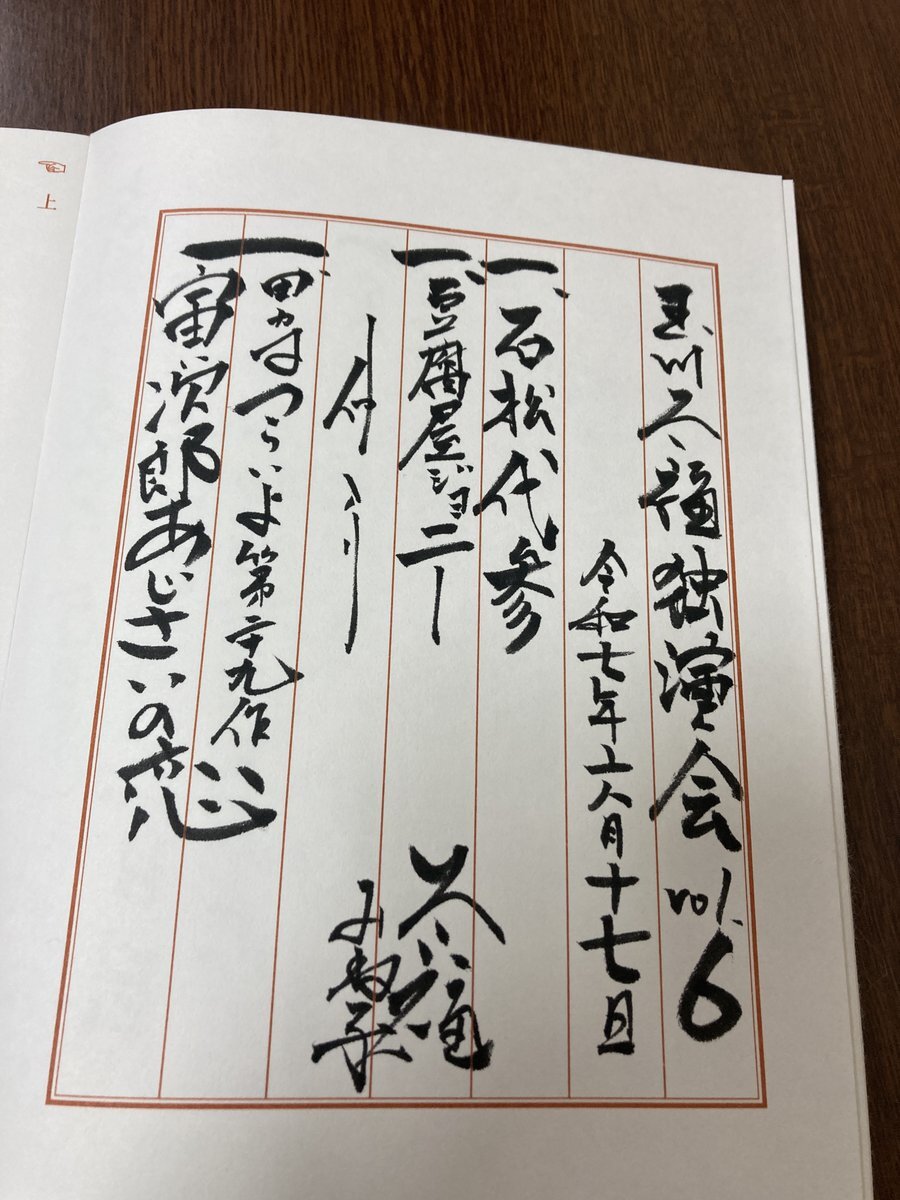 玉川太福独演会 vol.6
令和七年六月十七日
一、石松代参
一、豆腐屋ジョニー
太福
みね子
―仲入り―
一、男はつらいよ第二十九作
寅次郎あじさいの恋
☜ 上